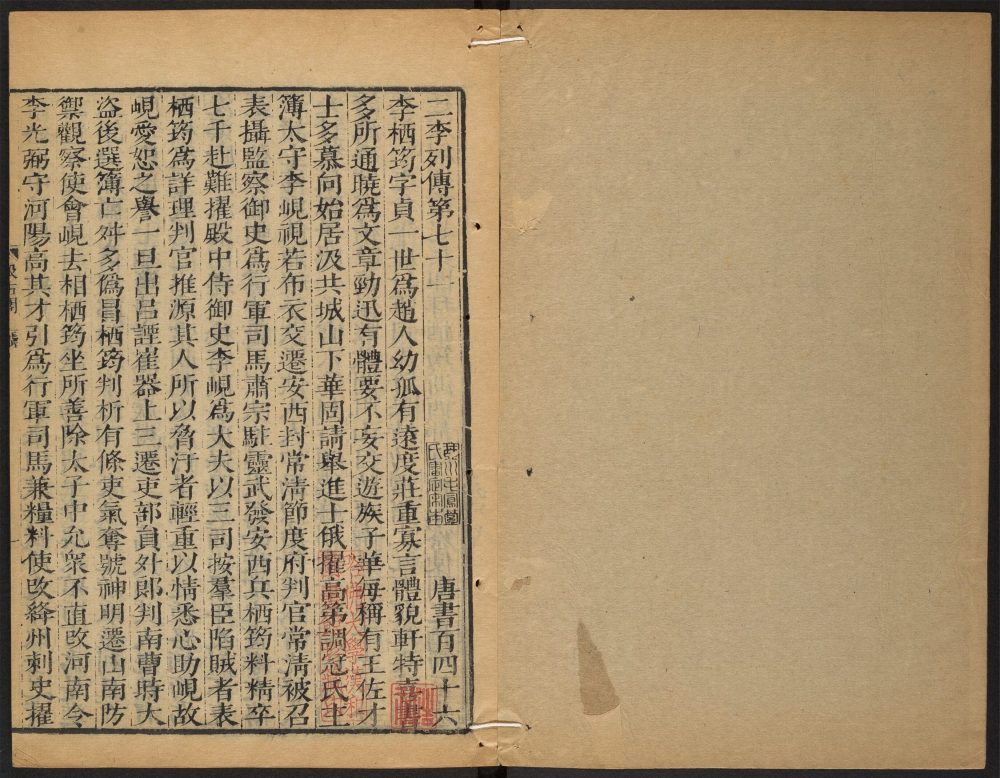 二李列傳第七十一
唐書百四十六
李栖筠字貞一世爲趙人幼孤有遠度莊重寡言體貌軒特喜書
多所通曉爲文章勁迅有體要不妄交遊族子華每稱有王佐才
士多慕向始居汲共城山下華固請舉進士俄擢高第調冠氏主
簿太守李峴視若布衣交遷安西封常清節度府判官常清被召
表攝監察御史爲行軍司馬肅宗駐靈武發安西兵栖筠料精卒
七千赴難擢殿中侍御史李峴爲大夫以三司按羣臣陷賊者表
栖筠爲詳理判官推源其人所以脅汙者輕重以情悉心助峴故
峴愛恕之譽一旦出呂諲崔器上三遷吏部員外郎判南曹時大
盜後選簿亡舛多僞冒栖筠判析有條吏氣奪號神明遷山南防
禦觀察使會峴去相栖筠坐所善除太子中允衆不直改河南令
李光弼守河陽高其才引爲行軍司馬兼糧料使改絳州刺史擢